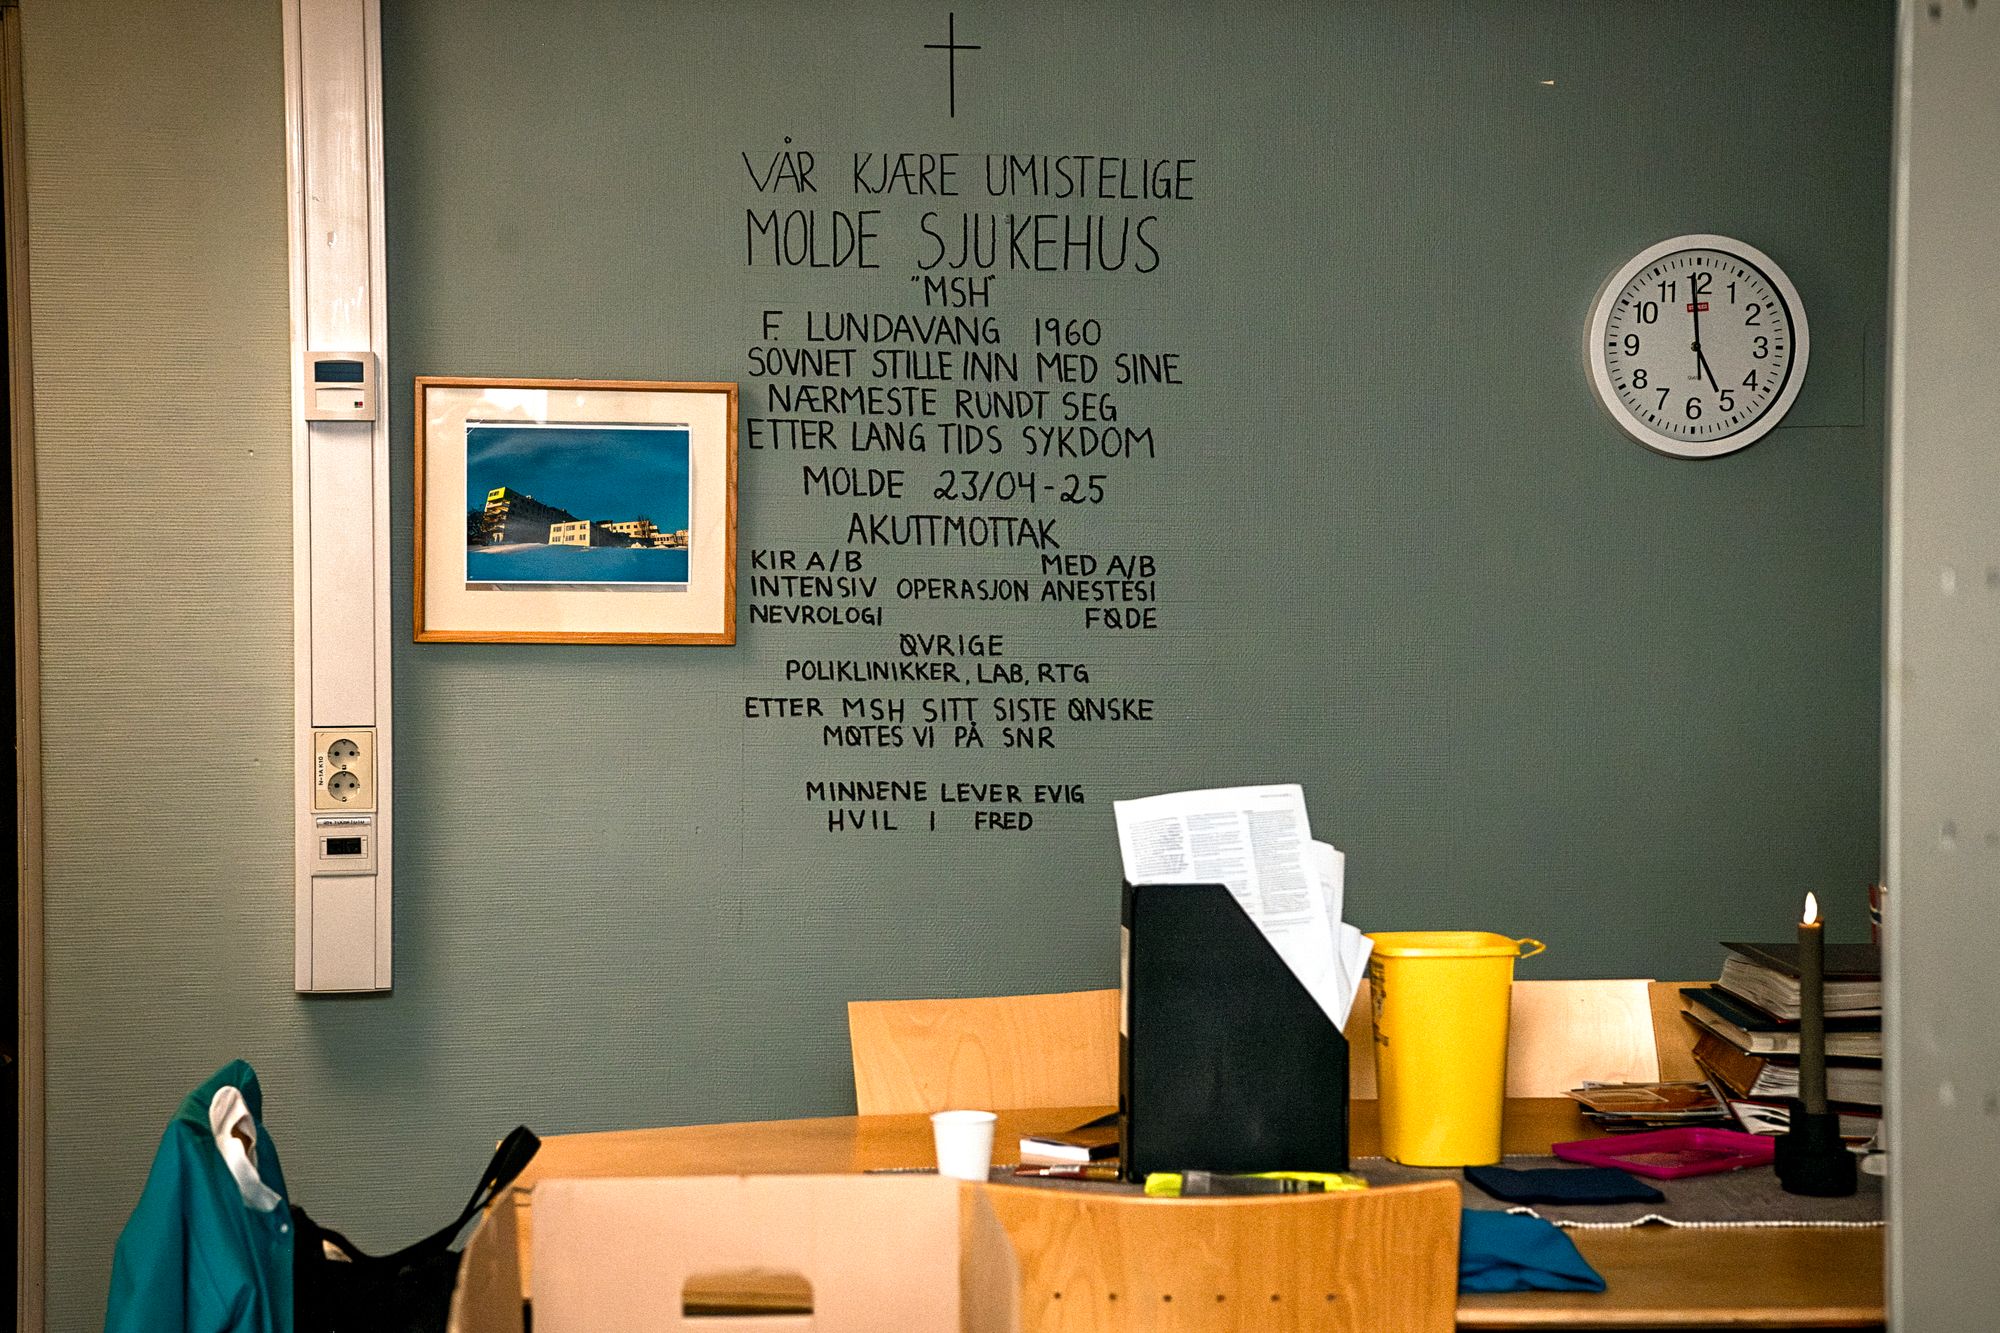 VÅR KJÆRE UMISTELIGE
MOLDE SJUKEHUS
"MSH"
F. LUNDAVANG 1960
SOVNET STILLE INN MED SINE
NÆRMESTE RUNDT SEG
ETTER LANG TIDS SYKDOM
MOLDE 23/04-25
AKUTTMOTTAK
KIR A/B MED A/B
INTENSIV OPERASJON ANESTESI
NEVROLOGI FØDE
ØVRIGE
POLIKLINIKKER, LAB, RTG
ETTER MSH SITT SISTE ØNSKE
MØTES VI PÅ SNR
MINNENE LEVER EVIG
HVIL I FRED
12 1 2 3 4 5 6 7 8 9 10 11